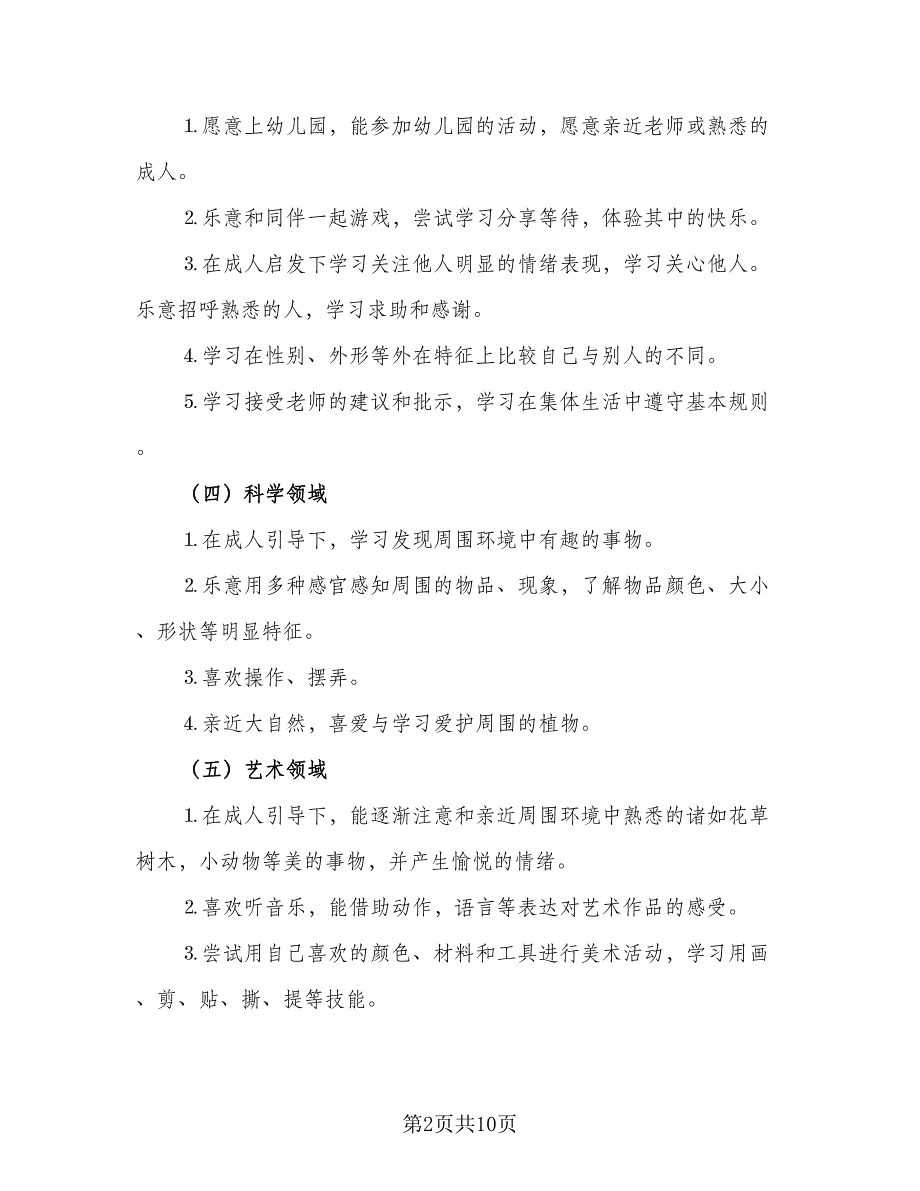 1.愿意上幼儿园，能参加幼儿园的活动，愿意亲近老师或熟悉的
成人。
2.乐意和同伴一起游戏，尝试学习分享等待，体验其中的快乐。
3.在成人启发下学习关注他人明显的情绪表现，学习关心他人。
乐意招呼熟悉的人，学习求助和感谢。
4.学习在性别、外形等外在特征上比较自己与别人的不同。
5.学习接受老师的建议和批示，学习在集体生活中遵守基本规则
。
（四）科学领域
1.在成人引导下，学习发现周围环境中有趣的事物。
2.乐意用多种感官感知周围的物品、现象，了解物品颜色、大小
、形状等明显特征。
3.喜欢操作、摆弄。
4.亲近大自然，喜爱与学习爱护周围的植物。
（五）艺术领域
1.在成人引导下，能逐渐注意和亲近周围环境中熟悉的诸如花草
树木，小动物等美的事物，并产生愉悦的情绪。
2.喜欢听音乐，能借助动作，语言等表达对艺术作品的感受。
3.尝试用自己喜欢的颜色、材料和工具进行美术活动，学习用画
、剪、贴、撕、提等技能。
第2页共10页